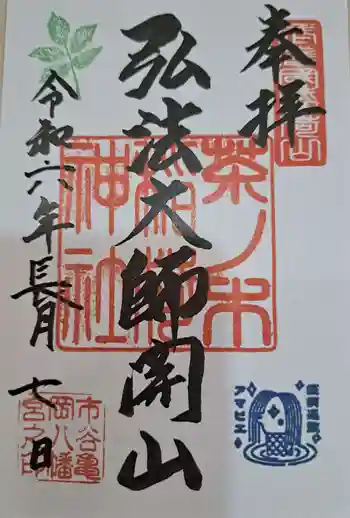 奉拝
弘法大師開山
令和六年長月七日
茶ノ木
稲荷
神社
市谷亀
岡八幡
宮之印
アマビエ